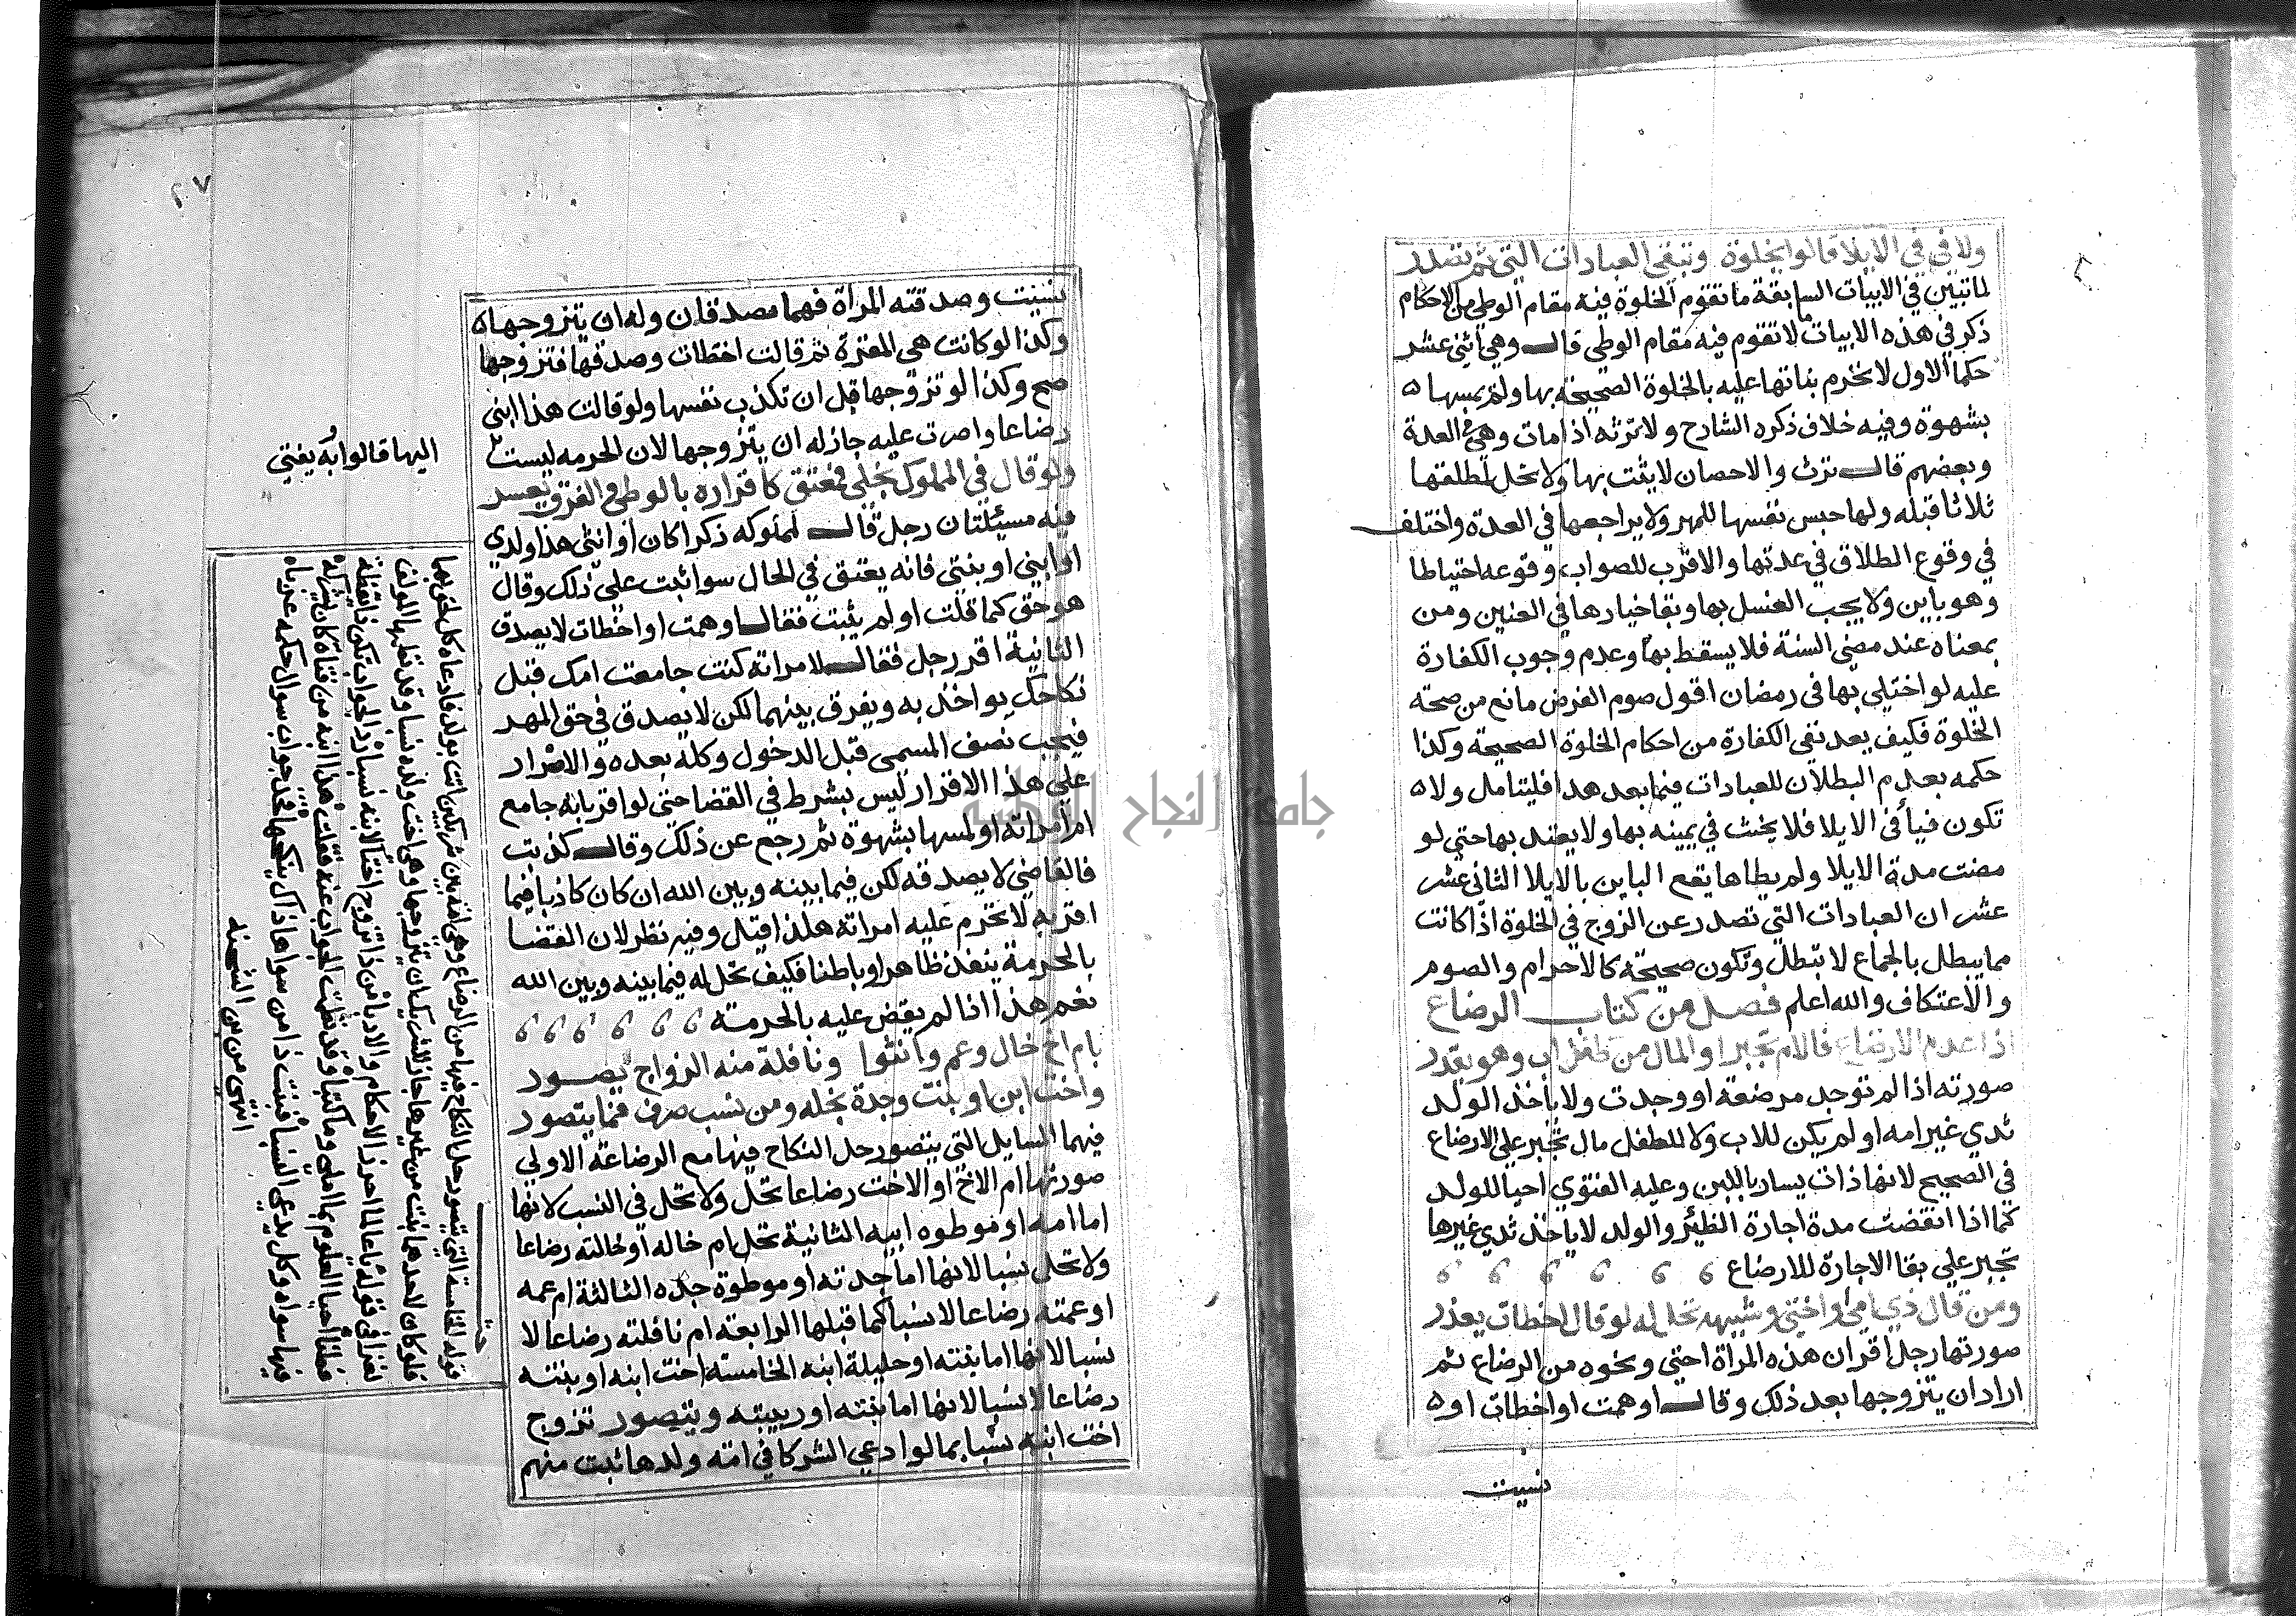 ولا في في الايلا قالوا بخلوة وتبقى العبادات التي ثم تصدر
لما تبين في الابيات السابقة ما تقوم الخلوة فيه مقام الوطي من الاحكام
ذكر في هذه الابيات ما لا تقوم فيه مقام الوطي قال وهي اثني عشر
حكما الاول لا تحرم بناتها عليه بالخلوة الصحيحة بها ولم يمسها
بشهوة وفيه خلاف ذكره الشارح ولا ترثه اذا مات وهي في العدة
وبعضهم قال ترث والاحصان لا يثبت بها ولا تحل لمطلقها
ثلاثا قبله ولها حبس نفسها للمهر ولا يراجعها في العدة واختلف
في وقوع الطلاق في عدتها والاقرب للصواب وقوعه احتياطا
وهو باين ولا يجب الغسل بها وبقا خيارها في العنين ومن
بمعناه عند مضي السنة فلا يسقط بها وعدم وجوب الكفارة
عليه لو اختلي بها في رمضان اقول صوم الفرض مانع من صحة
الخلوة فكيف يعد نفي الكفارة من احكام الخلوة الصحيحة وكذا
حكمه بعدم البطلان للعبادات فيما بعد هدا فليتامل ولا
تكون فيأ في الايلا فلا يحنث في يمينه بها ولا يعتد بها حتي لو
مضت مدة الايلا ولم يطاها يقع الباين بالايلا الثاني عشر
عشر ان العبادات التي تصدر عن الزوج في الخلوة اذا كانت
مما يبطل بالجماع لا تبطل وتكون صحيحة كالاحرام والصوم
والاعتكاف والله اعلم فصل من كتاب الرضاع
اذا عدم الارضاع فالام تجبر او المال من طفل اب وهو يقدر
صورته اذا لم توجد مرضعة او وجدت ولا ياخذ الولد
ثدي غير امه او لم يكن للاب ولا للطفل مال تجبر علي الارضاع
في الصحيح لانها ذات يسار باللبن وعليه الفتوي احيا للولد
كما اذا انقضت مدة اجارة الظئر والولد لا ياخذ ثدي غيرها
تجبر علي بقا الاجارة للارضاع
ومن قال ذي امي واختي وشبهه تحل له لو قال اخطات يعذر
صورتها رجل اقر ان هذه المراة اختي ونحوه من الرضاع ثم
اراد ان يتزوجها بعد ذلك وقال اوهمت او اخطات او
نسيت
٢٠٧
نسيت وصدقته المراة فهما مصدقان وله ان يتزوجها
وكذا لو كانت هي المقرة ثم قالت اخطات وصدقها فتزوجها
صح وكذا لو تزوجها قبل ان تكذب نفسها ولو قالت هذا ابني
رضاعا واصرت عليه جاز له ان يتزوجها لان الحرمه ليست
اليها قالوا وبه يفتي
ولو قال في المملوك نجلي فمعتق كاقراره بالوطي والفرق يعسر
فيه مسئلتان رجل قال لمملوكه ذكرا كان او انثي هذا ولدي
او ابني او بنتي فانه يعتق في الحال سوا ثبت علي ذلك وقال
هو حق كما قلت او لم يثبت فقال اوهمت او اخطات لا يصدق
الثانية اقر رجل فقال لامراته كنت جامعت امك قبل
نكاحك يواخذ به ويفرق بينهما لكن لا يصدق في حق المهر
فيجب نصف المسمي قبل الدخول وكله بعده والاصرار
علي هذا الاقرار ليس بشرط في القضا حتي لو اقر بانه جامع
ام امراته او لمسها بشهوة ثم رجع عن ذلك وقال كذبت
فالقاضي لا يصدقه لكن فيما بينه وبين الله ان كان كاذبا فيما
اقر به لا تحرم عليه امراته هكذا قيل وفيه نظر لان القضا
بالحرمة ينفذ ظاهرا وباطنا فكيف تحل له فيما بينه وبين الله
نعم هذا اذا لم يقض عليه بالحرمة
بام اخ خال وعم وانثوا ونافلة منه الزواج يصور
واخت ابن او بنت وجدة نجله ومن نسب صرف فما يتصور
فيهما المسايل التي يتصور حل النكاح فيها مع الرضاعة الاولي
صورتها ام الاخ او الاخت رضاعا تحل ولا تحل في النسب لانها
اما امه او موطوه ابيه الثانية تحل ام خاله او خالته رضاعا
ولا تحل نسبا لانها اما جدته او موطوة جده الثالثة ام عمه
او عمته رضاعا لا نسبا كما قبلها الرابعة ام نافلته رضاعا لا
نسبا لانها اما بنته او حليلة ابنه الخامسة اخت ابنه او بنته
رضاعا لا نسبا لانها اما بنته او ربيبته ويتصور تزوج
اخت ابنه نسبا بما لو ادعي الشركا في امة ولدها ثبت منهم
قوله الخامسة التي يتصور حل النكاح فيها من الرضاع وهي امة بين شريكين اتت بولد فادعاه كل
فلو كان لاحدهما بنت من غيرها جاز للشريك ان يتزوجها وهي اخت ولده نسبا وقد نظمها المولف
انتهي من بن الشحنه
جامعة النجاح الوطنية